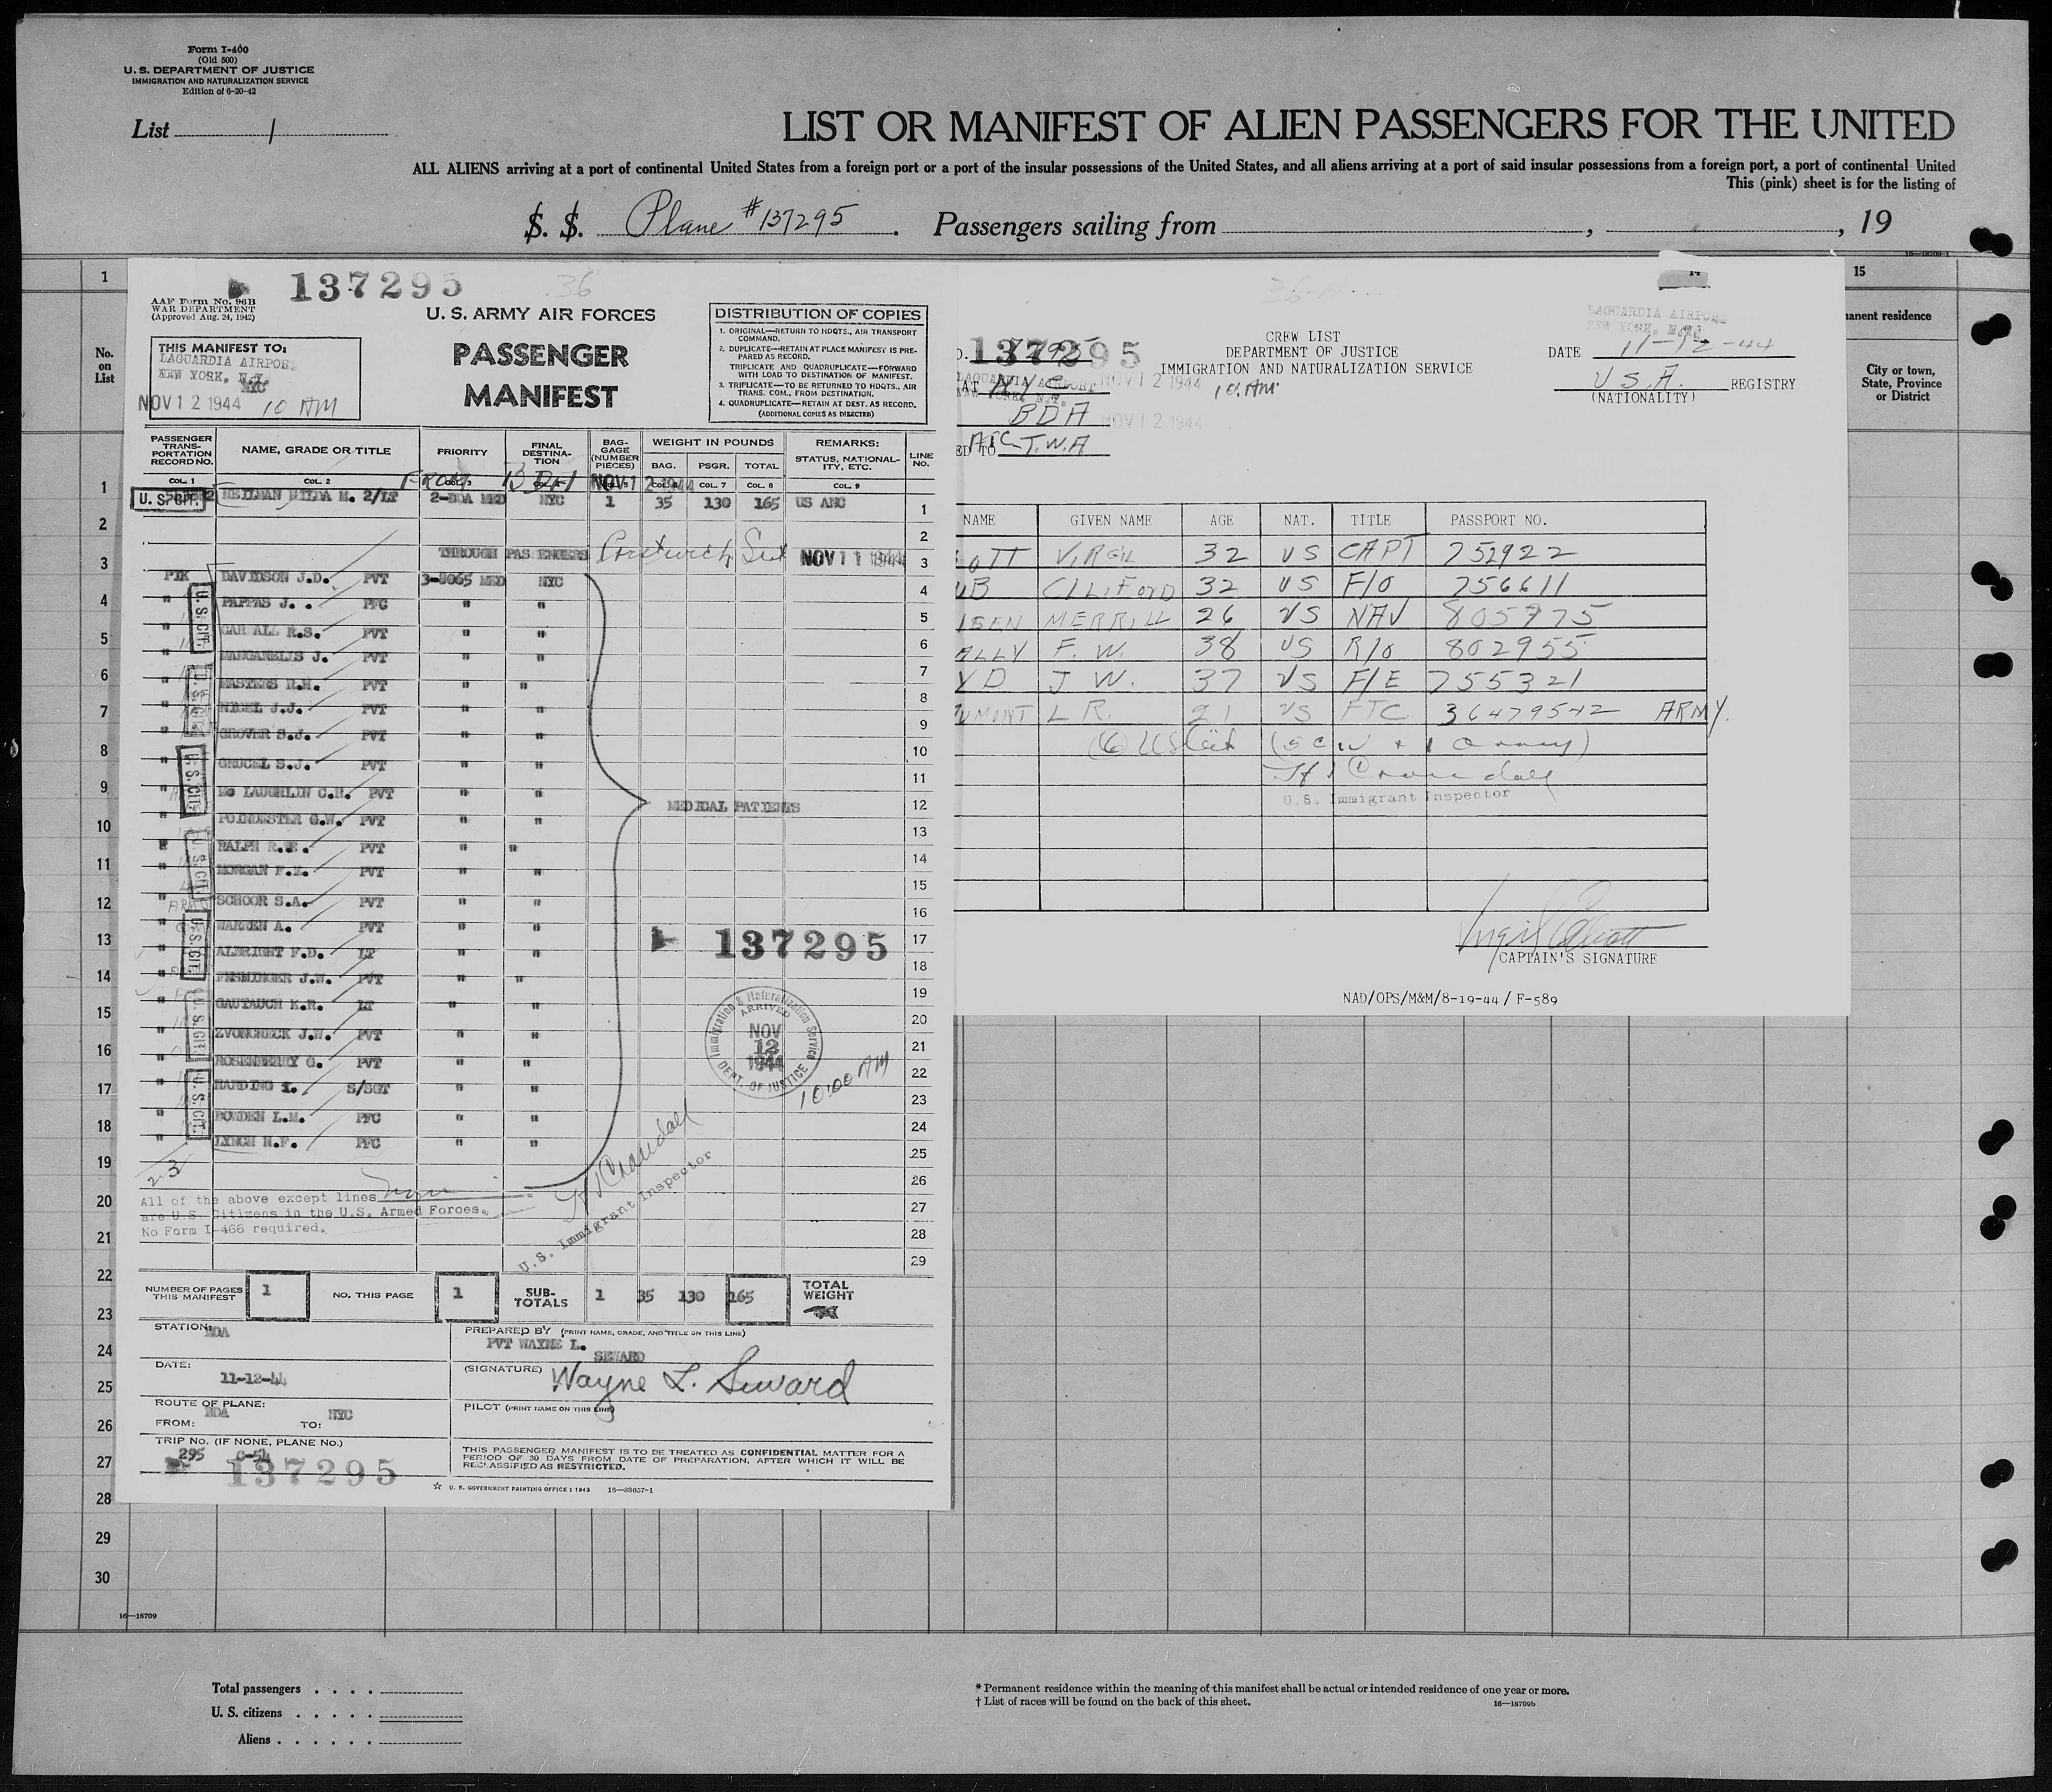 Form I-400
(Old 500)
U. S. DEPARTMENT OF JUSTICE
IMMIGRATION AND NATURALIZATION SERVICE
Edition of 6-20-42
List 1
LIST OR MANIFEST OF ALIEN PASSENGERS FOR THE UNITED
ALL ALIENS arriving at a port of continental United States from a foreign port or a port of the insular possessions of the United States, and all aliens arriving at a port of said insular possessions from a foreign port, a port of continental United
This (pink) sheet is for the listing of
S. S. Plane #137295. Passengers sailing from , , 19
16—18709-1
No. on List
137295 36
AAF Form No. 96B
WAR DEPARTMENT
(Approved Aug. 24, 1942)
U. S. ARMY AIR FORCES
PASSENGER
MANIFEST
THIS MANIFEST TO:
LAGUARDIA AIRPORT
NEW YORK, N.Y.
NYC
NOV 12 1944 10 AM
DISTRIBUTION OF COPIES
1. ORIGINAL—RETURN TO HDQTS., AIR TRANSPORT COMMAND.
2. DUPLICATE—RETAIN AT PLACE MANIFEST IS PREPARED AS RECORD.
TRIPLICATE AND QUADRUPLICATE—FORWARD WITH LOAD TO DESTINATION OF MANIFEST.
3. TRIPLICATE—TO BE RETURNED TO HDQTS., AIR TRANS. COM., FROM DESTINATION.
4. QUADRUPLICATE—RETAIN AT DEST. AS RECORD.
(ADDITIONAL COPIES AS DIRECTED)
PASSENGER TRANSPORTATION RECORD NO. NAME, GRADE OR TITLE PRIORITY FINAL DESTINATION BAGGAGE (NUMBER PIECES) WEIGHT IN POUNDS BAG. PSGR. TOTAL REMARKS: STATUS, NATIONALITY, ETC. LINE NO.
COL. 1 COL. 2 COL. 7 COL. 8 COL. 9
FROM BDA NOV 12 1944
U. S. CIT. HEILMAN HILDA M. 2/LT 2-BDA MED NYC 1 35 130 165 US ANC 1
2
THROUGH PASSENGERS Prestwick, Scot NOV 11 1944 3
PTR DAVIDSON J.D. PVT 3-8065 MED NYC 4
" PAPPAS J. . PFC " " 5
" R.S. PVT " " 6
" MANGANELIS J. PVT " " 7
" MASTERS R.H. PVT " " 8
" J.J. PVT " " 9
" GROVER S.J. PVT " " 10
" GRUCEL S.J. PVT " " 11
" Mc LAUGHLIN C.H. PVT " " 12
" POINDEXTER G.W. PVT " " 13
" RALPH R.E. PVT " " 14
" MORGAN F.E. PVT " " 15
" SCHOOR S.A. PVT " " 16
" WARREN A. PVT " " 17
" ALBRIGHT F.D. LT " " 18
" ENSMINGER J.W. PVT " " 19
" GAUTAUCH K.R. LT " " 20
" ZVONCHECK J.W. PVT " " 21
" ROSENBERRY O. PVT " " 22
" HARDING S/SGT " " 23
" BOWDEN L.M. PFC " " 24
" LYNCH N.F. PFC " " 25
U. S. CIT.
U. S. CIT.
U. S. CIT.
U. S. CIT.
U. S. CIT.
U. S. CIT.
U. S. CIT.
MEDICAL PATIENTS
137295
Immigration & Naturalization Service
ARRIVED
NOV
12
1944
DEPT. OF JUSTICE
10:00 AM
26
27
28
29
23
All of the above except lines none
are U.S. Citizens in the U.S. Armed Forces.
No Form I-466 required.
Crandall
U.S. Immigrant Inspector
NUMBER OF PAGES THIS MANIFEST 1 NO. THIS PAGE 1 SUB-TOTALS 1 35 130 165 TOTAL WEIGHT
STATION: BDA
DATE: 11-12-44
ROUTE OF PLANE:
FROM: BDA TO: NYC
TRIP No. (IF NONE, PLANE No.)
295 C-54
137295
PREPARED BY (PRINT NAME, GRADE, AND TITLE ON THIS LINE)
PVT WAYNE L. SEWARD
(SIGNATURE) Wayne L. Seward
PILOT (PRINT NAME ON THIS LINE)
THIS PASSENGER MANIFEST IS TO BE TREATED AS CONFIDENTIAL MATTER FOR A PERIOD OF 30 DAYS FROM DATE OF PREPARATION, AFTER WHICH IT WILL BE RECLASSIFIED AS RESTRICTED.
☆ U. S. GOVERNMENT PRINTING OFFICE : 1943 16—33057-1
CREW LIST
DEPARTMENT OF JUSTICE
IMMIGRATION AND NATURALIZATION SERVICE
137295
LAGUARDIA AIRPORT
NEW YORK, N.Y.
DATE 11-12-44
U S.A. REGISTRY
(NATIONALITY)
AT NYC NOV 12 1944 10. AM
LAGUARDIA AIRPORT
NEW YORK, N.Y.
BDA NOV 12 1944
ED TO ATC-T.W.A
NAME GIVEN NAME AGE NAT. TITLE PASSPORT NO.
OTT VIRGIL 32 US CAPT 752922
UB CLIFFORD 32 US F/O 756611
SEN MERRILL 26 US NAV 805775
ALLY F. W. 38 US R/O 802955
YD J W. 37 US F/E 755321
UMONT L R. 21 US FTC 36479542 ARMY.
(6) US Cit (5 CIV + 1 army)
Crandall
U.S. Immigrant Inspector
CAPTAIN'S SIGNATURE
NAD/OPS/M&M/8-19-44 / F-589
14
15
manent residence
City or town, State, Province or District
1
2
3
4
5
6
7
8
9
10
11
12
13
14
15
16
17
18
19
20
21
22
23
24
25
26
27
28
29
30
16—18709
Total passengers
U. S. citizens
Aliens
* Permanent residence within the meaning of this manifest shall be actual or intended residence of one year or more.
† List of races will be found on the back of this sheet.
16—18709b